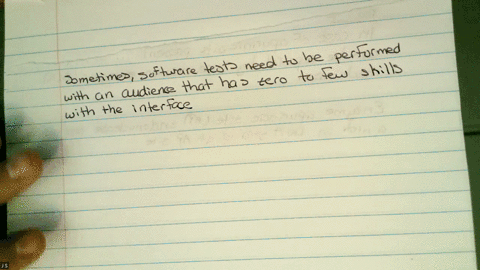 Sometimes, software tests need to be performed
with an audience that has zero to few skills
with the interface